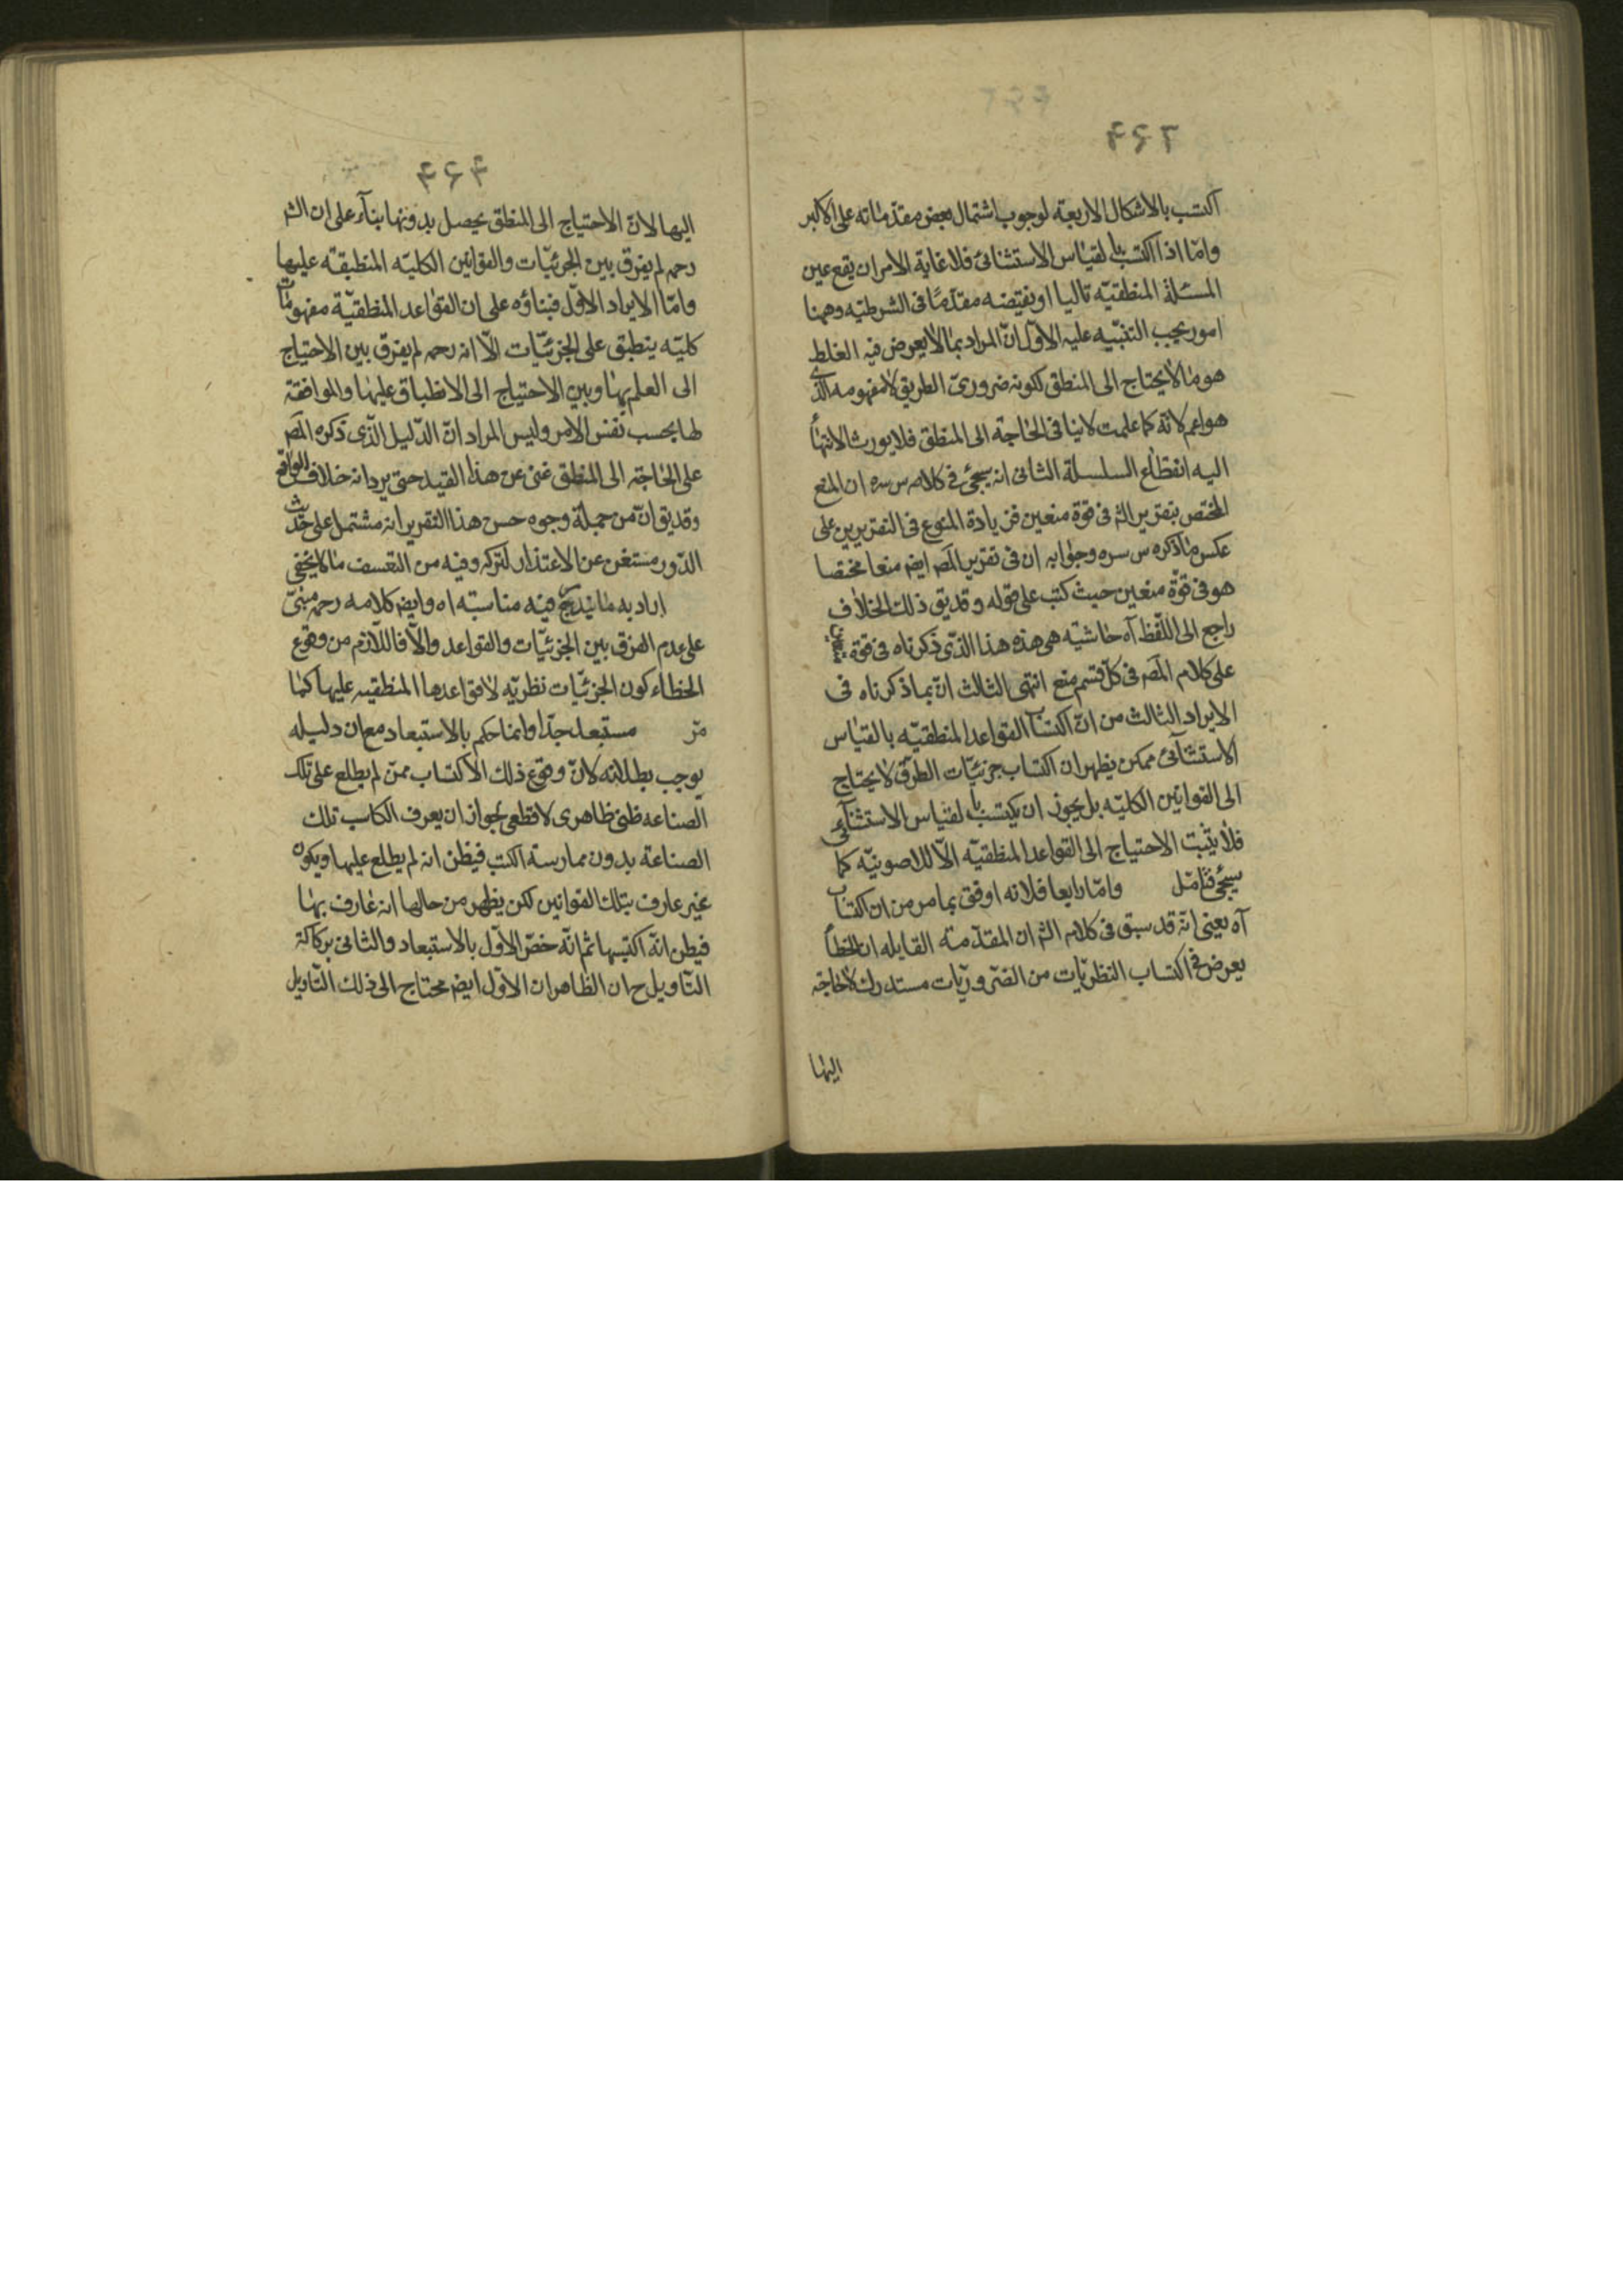 ٢٤٣
اكتسب بالاشكال الاربعة لوجوب اشتمال بعض مقدماته على الاكبر
وامّا اذا اكتسب بالقياس الاستثنائى فلا غاية الامر ان يقع عين
المسئلة المنطقيّه تاليا او نقيضه مقدّمًا فى الشرطيّه وههنا
امور يجب التنبّيه عليه الاوّل انّ المراد بما لا يعرض فيه الغلط
هو ما لا يحتاج الى المنطق لكونه ضرورىّ الطريق لا مفهومه الذى
هو اعم لانّه كما علمت لا ينافى الحاجة الى المنطق فلا يورث الانتهاء
اليه انقطاع السلسلة الثانى انه سيجئ فى كلامه س سره ان المنع
المختص بتقرير الشـ فى قوة منعين فزيادة المنوع فى التقريرين على
عكس ما ذكره س سره وجوابه ان فى تقرير المصـ ايضـ منعا مختصا
هو فى قوّة منعين حيث كتب على قوله وقد يق ذلك الخلاف
راجع الى اللّفظ آه حاشيّه هى هذه هذا الذّى ذكرناه فى قوة
على كلام المصـ فى كلّ قسم منع انتهى الثالث انّ بما ذكرناه فى
الايراد الثالث من انّ اكتساب القواعد المنطقيّه بالقياس
الاستثنآئى ممكن يظهر ان اكتساب جزئيّات الطرق لا يحتاج
الى القوانين الكليّه بل يجوز ان يكتسب بالقياس الاستثنآئى
فلا يثبت الاحتياج الى القواعد المنطقيّه الّا للاصونيّه كما
سيجئ فتامّل وامّا رابعا فلانه اوفق بما مر من ان اكتساب
آه يعنى انّه قد سبق فى كلام الشـ ان المقدّمة القايله ان الخطأ
يعرض فى اكتساب النظريّات من الضّروريّات مستدرك لا حاجة
اليها
٢٤٤
اليها لانّ الاحتياج الى المنطق يحصل بدونها بنآء على ان الشـ
رحمـ لم يفرق بين الجزئيّات والقوانين الكليّه المنطبقة عليها
وامّا الايراد الاوّل فبناؤه على ان القواعد المنطقيّة مفهومات
كليّه ينطبق على الجزئيّات الّا انه رحمـ لم يفرق بين الاحتياج
الى العلم بها وبين الاحتياج الى الانطباق عليها والموافقة
لها بحسب نفس الامر وليس المراد انّ الدّليل الذّى ذكره المصـ
على الحاجة الى المنطق غنى عن هذا القيد حتى يرد انه خلاف الواقع
وقد يق انّ من جملة وجوه حسن هذا التقرير انه مشتمل على حديث
الدّور مستغن عن الاعتذار لتركه وفيه من التعّسف ما لا يخفى
اراد به ما يندرج فيه مناسبته اه وايضـ كلامه رحمـ مبنىّ
على عدم الفرق بين الجزئيّات والقواعد والّا فاللّازم من وقوع
الخطاء كون الجزئيّات نظريّه لا قواعدها المنطقيه عليها كما
مّر مستبعد جدّا وانما حكم بالاستبعاد مع ان دليله
يوجب بطلانه لانّ وقوع ذلك الاكتساب ممّن لم يطلع على تلك
الصناعه ظنى ظاهرى لا قطعى لجواز ان يعرف الكاسب تلك
الصناعة بدون ممارسة الكتب فيظن انه لم يطلع عليها ويكون
غير عارف بتلك القوانين لكن يظهر من حالها انه عارف بها
فيظن انّه اكتسبها ثم انّه خصّ الاوّل بالاستبعاد والثانى بركاكة
التّاويل ح ان الظاهر ان الاوّل ايضـ محتاج الى ذلك التّاويل